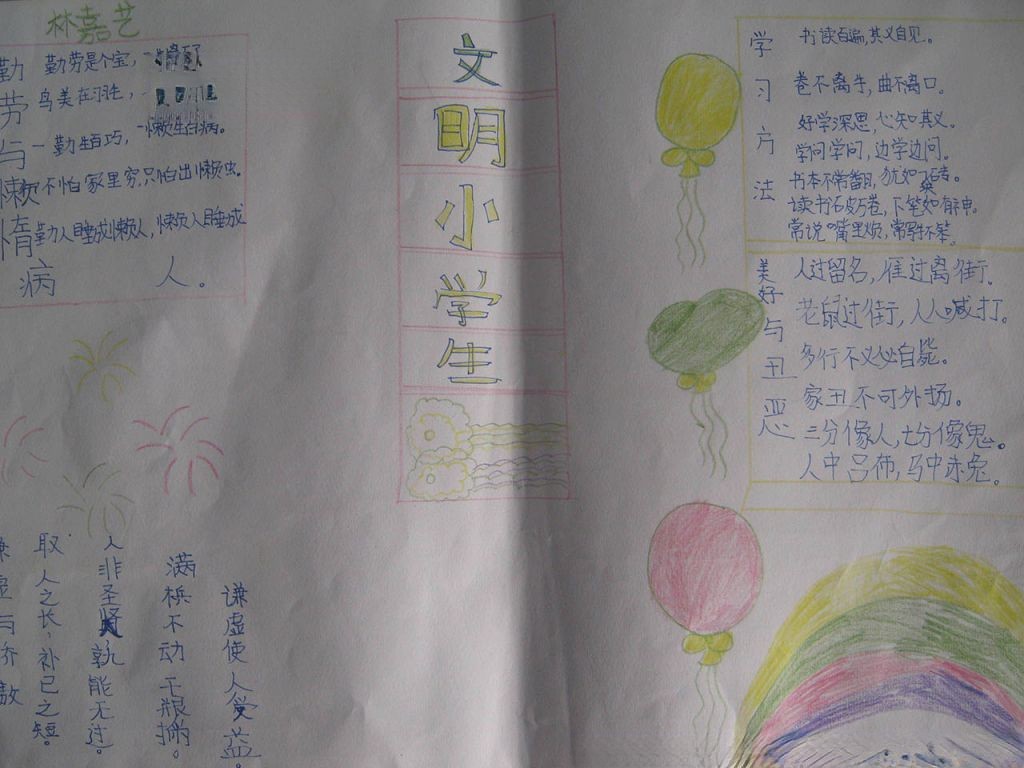 林嘉艺
勤劳与懒惰病
勤劳是个宝，一
鸟美在羽
一勤生百巧，一懒生百病。
不怕家里穷，只怕出懒虫。
勤人睡成懒人，懒人睡成
人。
文明小学生
学习方法
书读百遍，其义自见。
卷不离手，曲不离口。
好学深思，心知其义。
学问学问，边学边问。
书本不常翻，犹如一块砖。
读书破万卷，下笔如有神。
常说嘴里顺，常写手不笨。
美好与丑恶
人过留名，雁过
老鼠过街，人人喊打。
多行不义必自毙。
家丑不可外扬。
三分像人，七分像鬼。
人中吕布，马中赤兔。
谦虚与骄傲
取人之长，补己之短。
人非圣贤孰能无过。
满桶不动半瓶摇。
谦虚使人受益。